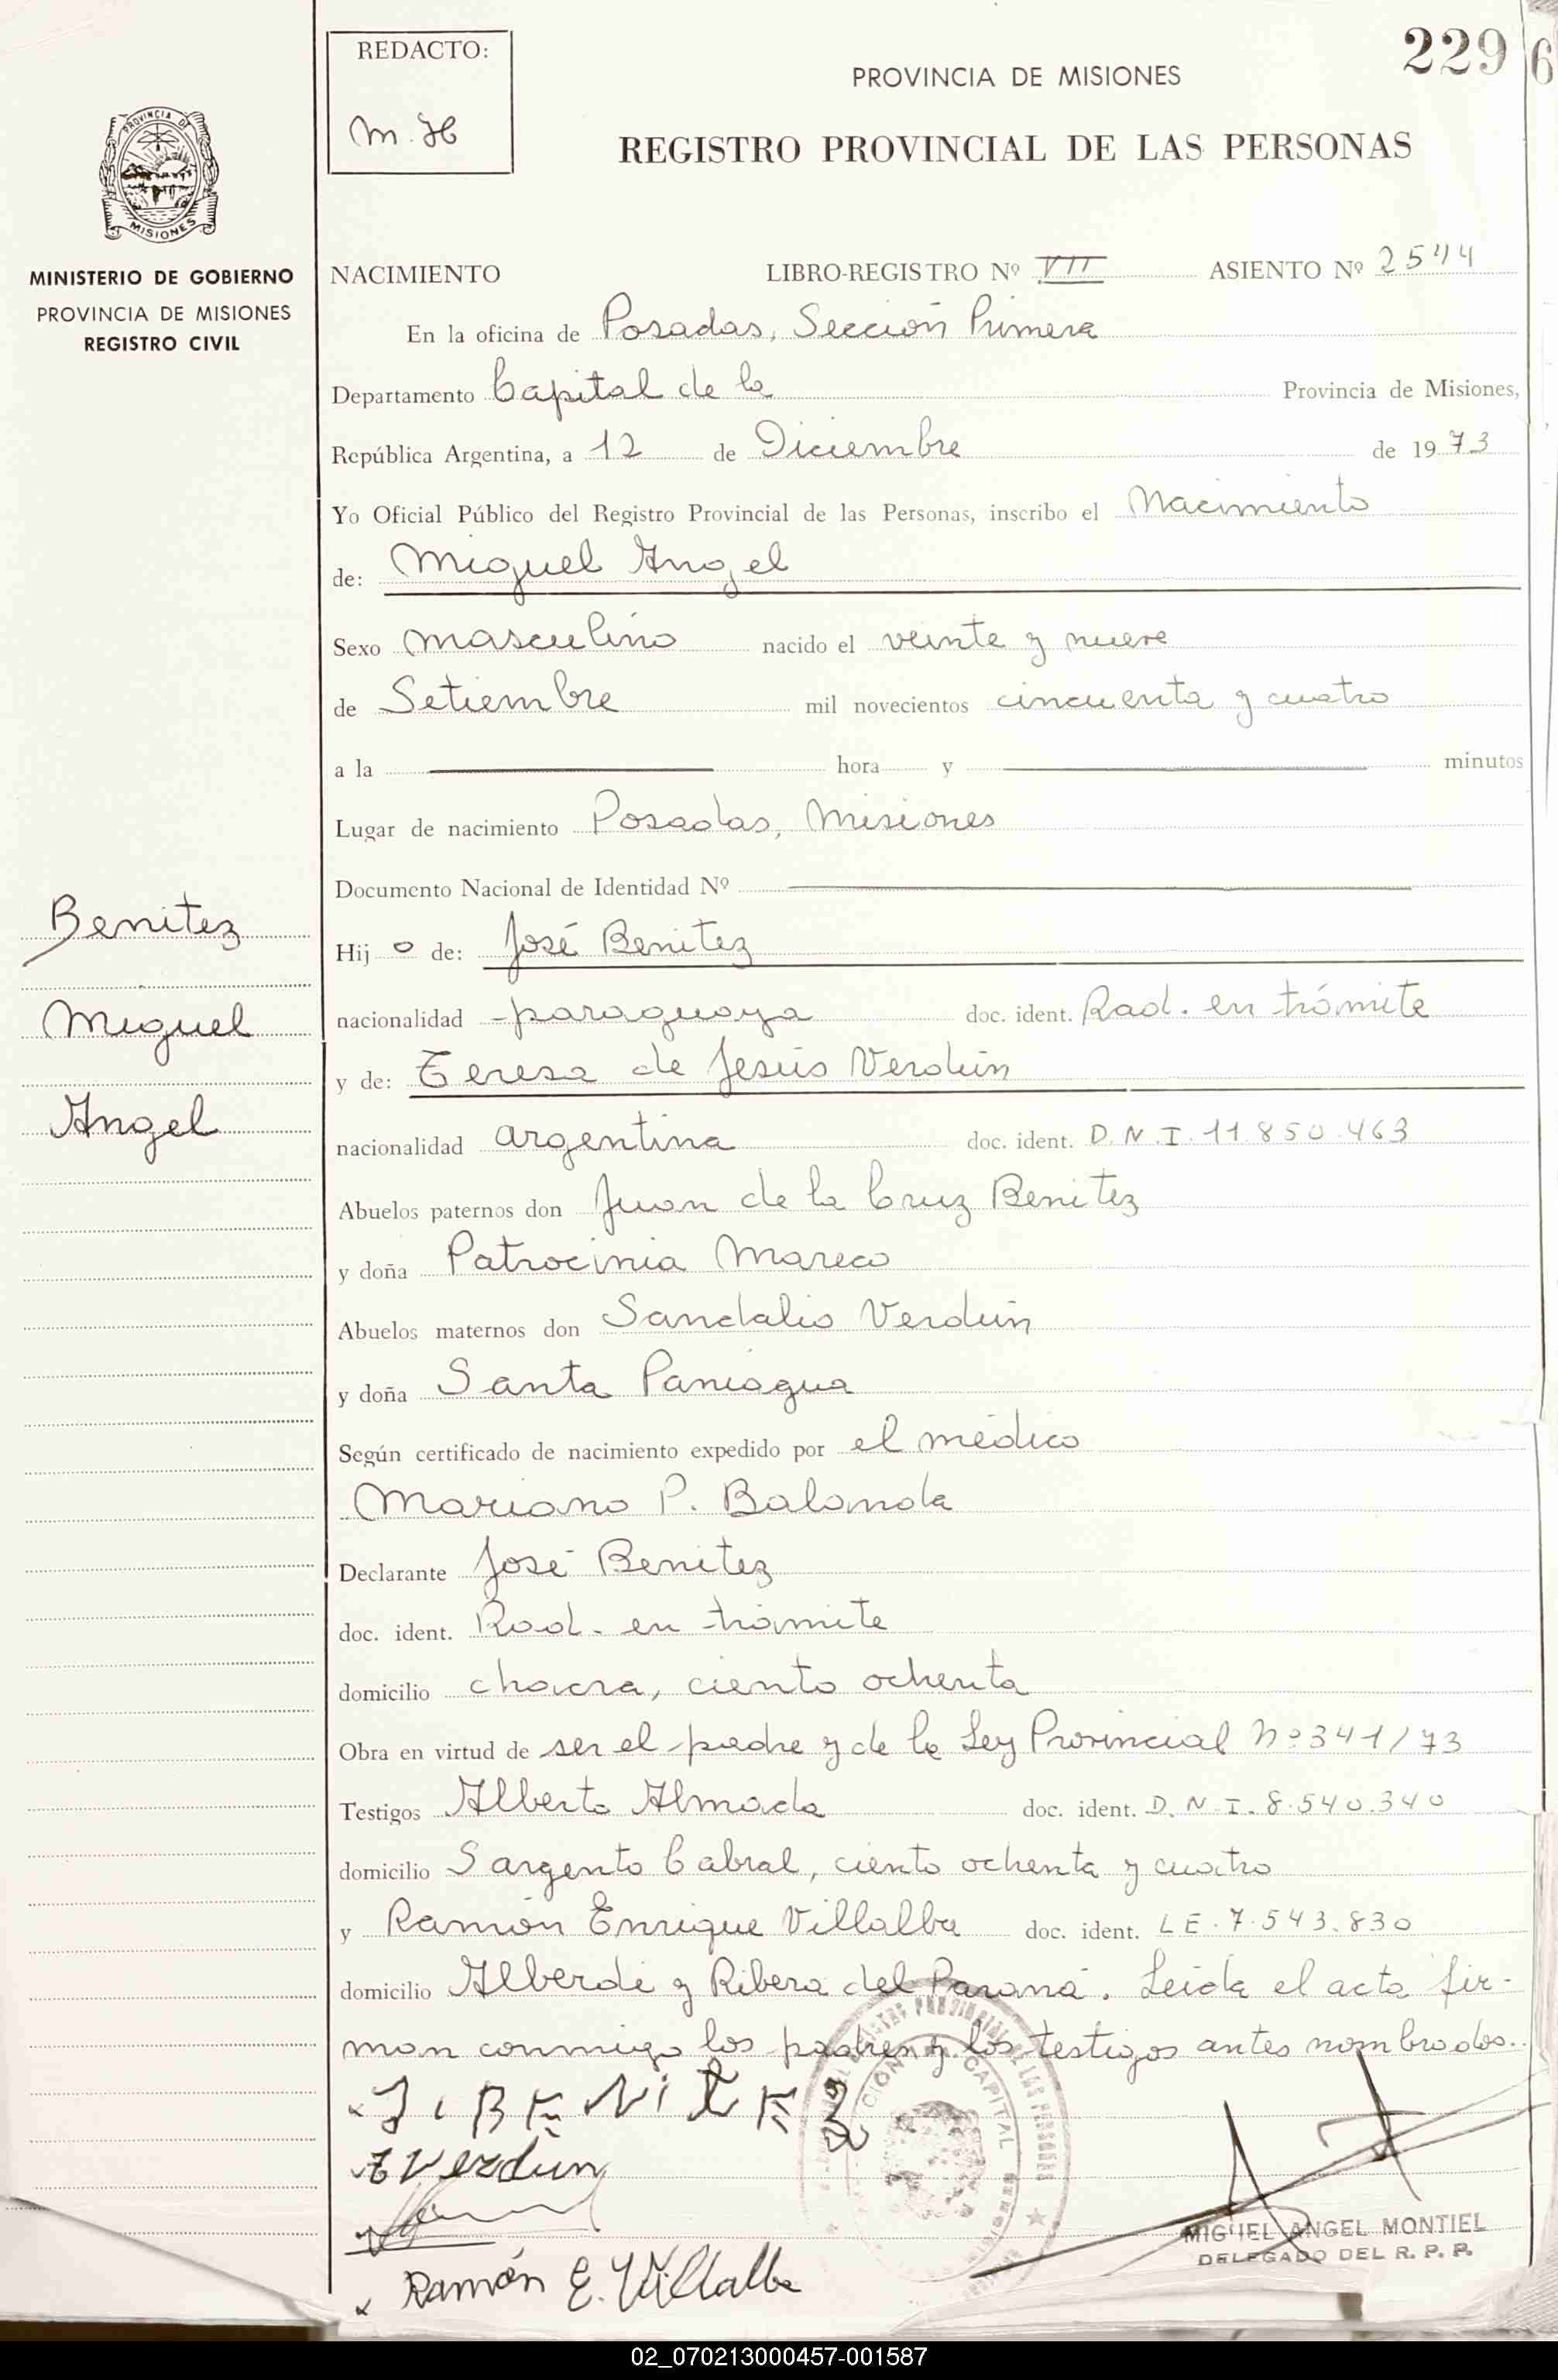 REDACTO:
M. H
229
6
PROVINCIA DE MISIONES
REGISTRO PROVINCIAL DE LAS PERSONAS
PROVINCIA DE
MISIONES
MINISTERIO DE GOBIERNO
PROVINCIA DE MISIONES
REGISTRO CIVIL
NACIMIENTO LIBRO-REGISTRO Nº VII ASIENTO Nº 2544
En la oficina de Posadas, Sección Primera
Departamento Capital de la Provincia de Misiones,
República Argentina, a 12 de Diciembre de 1973
Yo Oficial Público del Registro Provincial de las Personas, inscribo el Nacimiento
de: Miguel Angel
Sexo masculino nacido el veinte y nueve
de Setiembre mil novecientos cincuenta y cuatro
a la hora y minutos
Lugar de nacimiento Posadas, Misiones
Documento Nacional de Identidad Nº
Benitez
Miguel
Angel
Hij o de: José Benitez
nacionalidad paraguaya doc. ident. Rad. en trámite
y de: Teresa de Jesús Verdún
nacionalidad argentina doc. ident. D.N.I. 11.850.463
Abuelos paternos don Juan de la Cruz Benitez
y doña Patrocinia Mareco
Abuelos maternos don Sandalio Verdún
y doña Santa Paniagua
Según certificado de nacimiento expedido por el médico
Mariano P. Balanda
Declarante José Benitez
doc. ident. Rad. en trámite
domicilio chacra, ciento ochenta
Obra en virtud de ser el padre y de la Ley Provincial Nº 341/73
Testigos Alberto Almada doc. ident. D.N.I. 8.540.340
domicilio Sargento Cabral, ciento ochenta y cuatro
y Ramón Enrique Villalba doc. ident. LE. 7.543.830
domicilio Alberdi y Ribera del Paraná. Leida el acta fir-
man conmigo los padres y los testigos antes nombrados.
J. BENITEZ
T Verdún
Ramón E. Villalba
CAPITAL
MIGUEL ANGEL MONTIEL
DELEGADO DEL R. P. P.
02_070213000457-001587